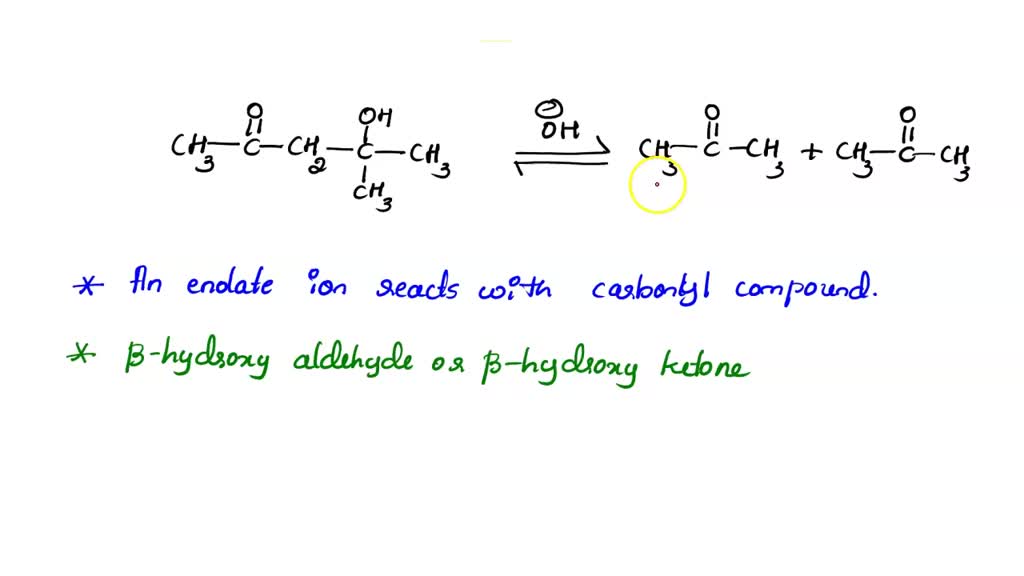 O O
OH ⊖ O O
CH3—C—CH2—C—CH3 OH ⇌ CH3—C—CH3 + CH3—C—CH3
CH3
* An endate ion reacts with carbontyl compound.
* β-hydroxy aldehyde or β-hydroxy ketone